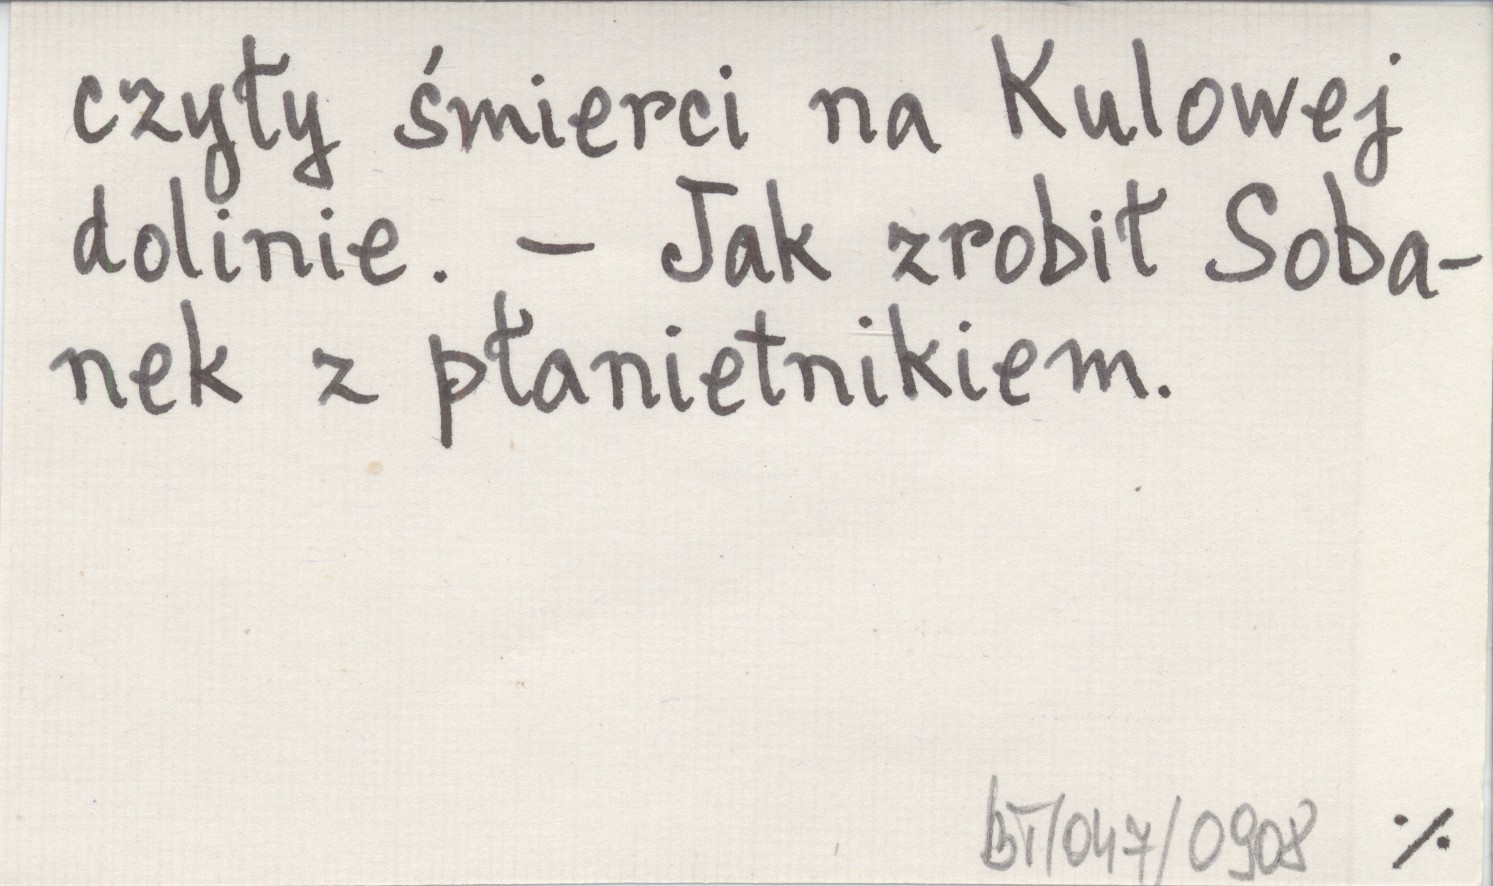 czyły śmierci na Kulowej
dolinie. – Jak zrobił Soba-
nek z płanietnikiem.
BT/047/0908 ·/.